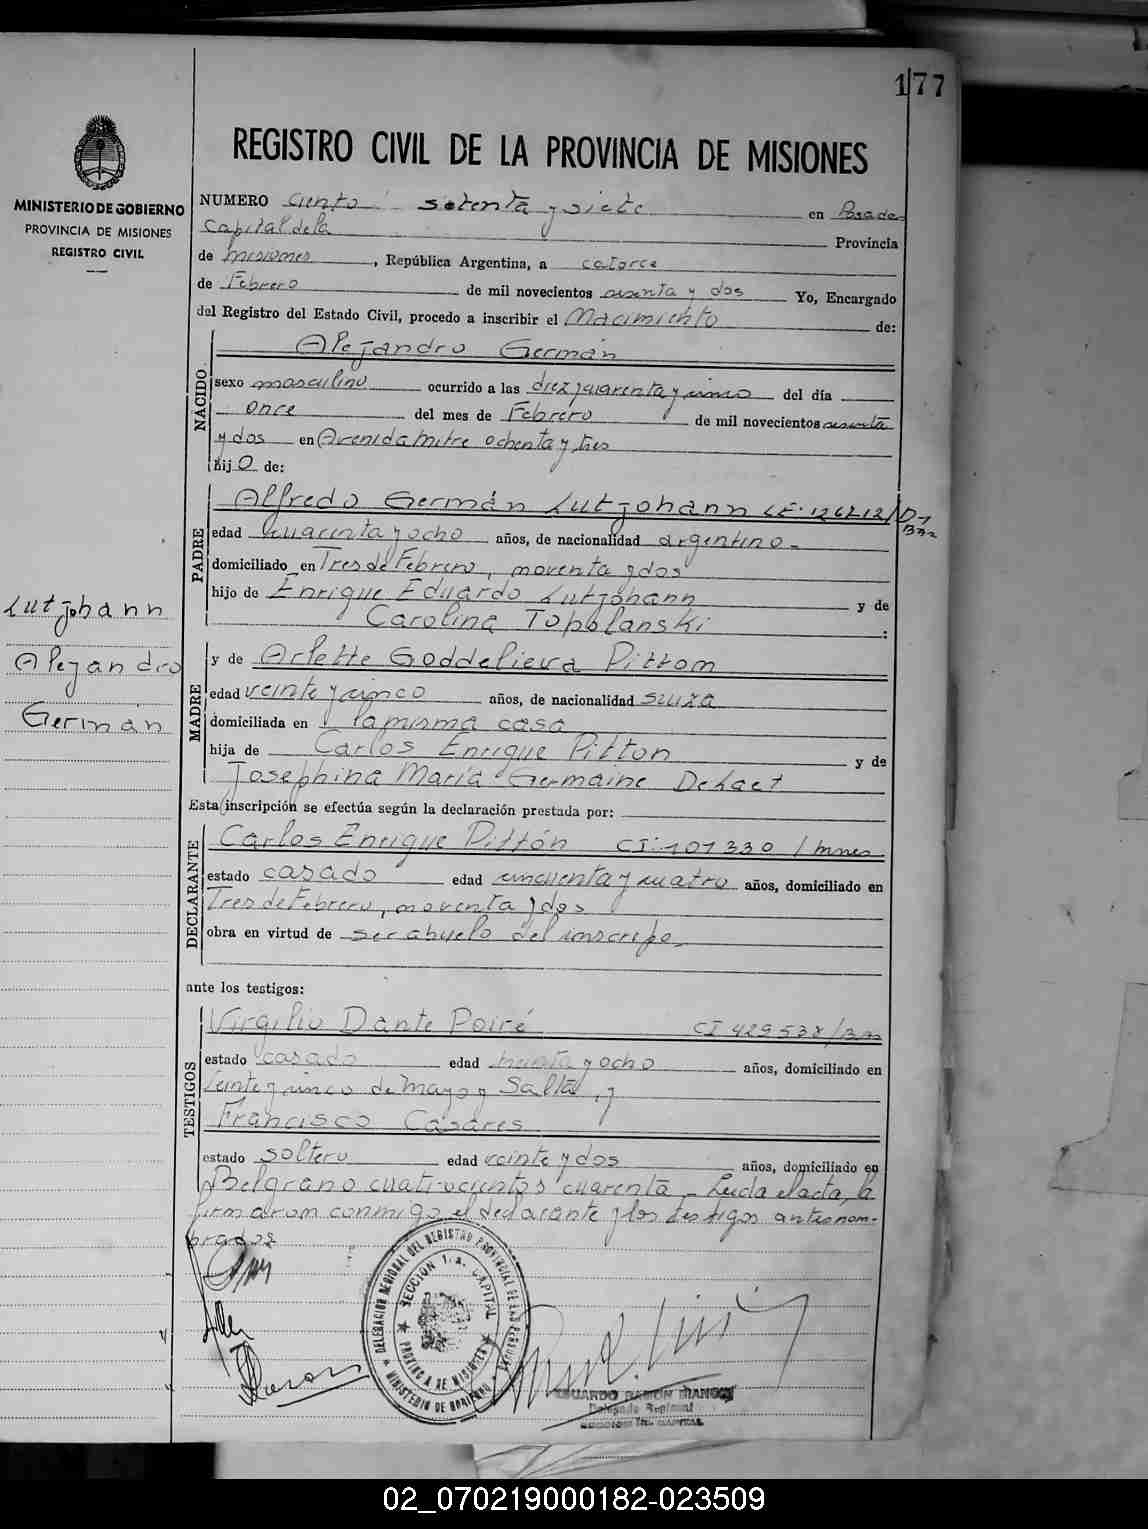 177
REGISTRO CIVIL DE LA PROVINCIA DE MISIONES
MINISTERIO DE GOBIERNO
PROVINCIA DE MISIONES
REGISTRO CIVIL
NUMERO Ciento setenta y siete en Posadas
Capital de la Provincia
de Misiones, República Argentina, a catorce
de Febrero de mil novecientos sesenta y dos Yo, Encargado
del Registro del Estado Civil, procedo a inscribir el Nacimiento de:
NACIDO
Alejandro Germán
sexo masculino ocurrido a las diez y cuarenta y cinco del día
once del mes de Febrero de mil novecientos sesenta
y dos en Avenida Mitre ochenta y tres
hijo de:
PADRE
Alfredo Germán Lutjohann
edad cuarenta y ocho años, de nacionalidad argentino-
domiciliado en Tres de Febrero, noventa y dos
hijo de Enrique Eduardo Lutjohann y de
Carolina Topolanski
Lutjohann
Alejandro
Germán
MADRE
y de Arlette Goddelieva Pittom
edad veinte y cinco años, de nacionalidad suiza
domiciliada en la misma casa
hija de Carlos Enrique Pitton y de
Josephina María Germaine Dehaet
Esta inscripción se efectúa según la declaración prestada por:
DECLARANTE
Carlos Enrique Pittón CI: 101330 / Mnes
estado casado edad cincuenta y cuatro años, domiciliado en
Tres de Febrero, noventa y dos
obra en virtud de ser abuelo del inscripo-
ante los testigos:
TESTIGOS
Virgilio Dante Poiré CI 429538
estado casado edad treinta y ocho años, domiciliado en
Veinte y cinco de Mayo y Salta, y
Francisco Casares
estado soltero edad veinte y dos años, domiciliado en
Belgrano cuatrocientos cuarenta - Leida el acta, la
firmaron conmigo, el declarante y los testigos antes nom-
brados
DELEGACION REGIONAL DEL REGISTRO PROVINCIAL DE LAS PERSONAS
SECCION 1.a. CAPITAL
PROVINCIA DE MISIONES
MINISTERIO DE GOBIERNO
EDUARDO RAMON
Delegado Regional
02_070219000182-023509